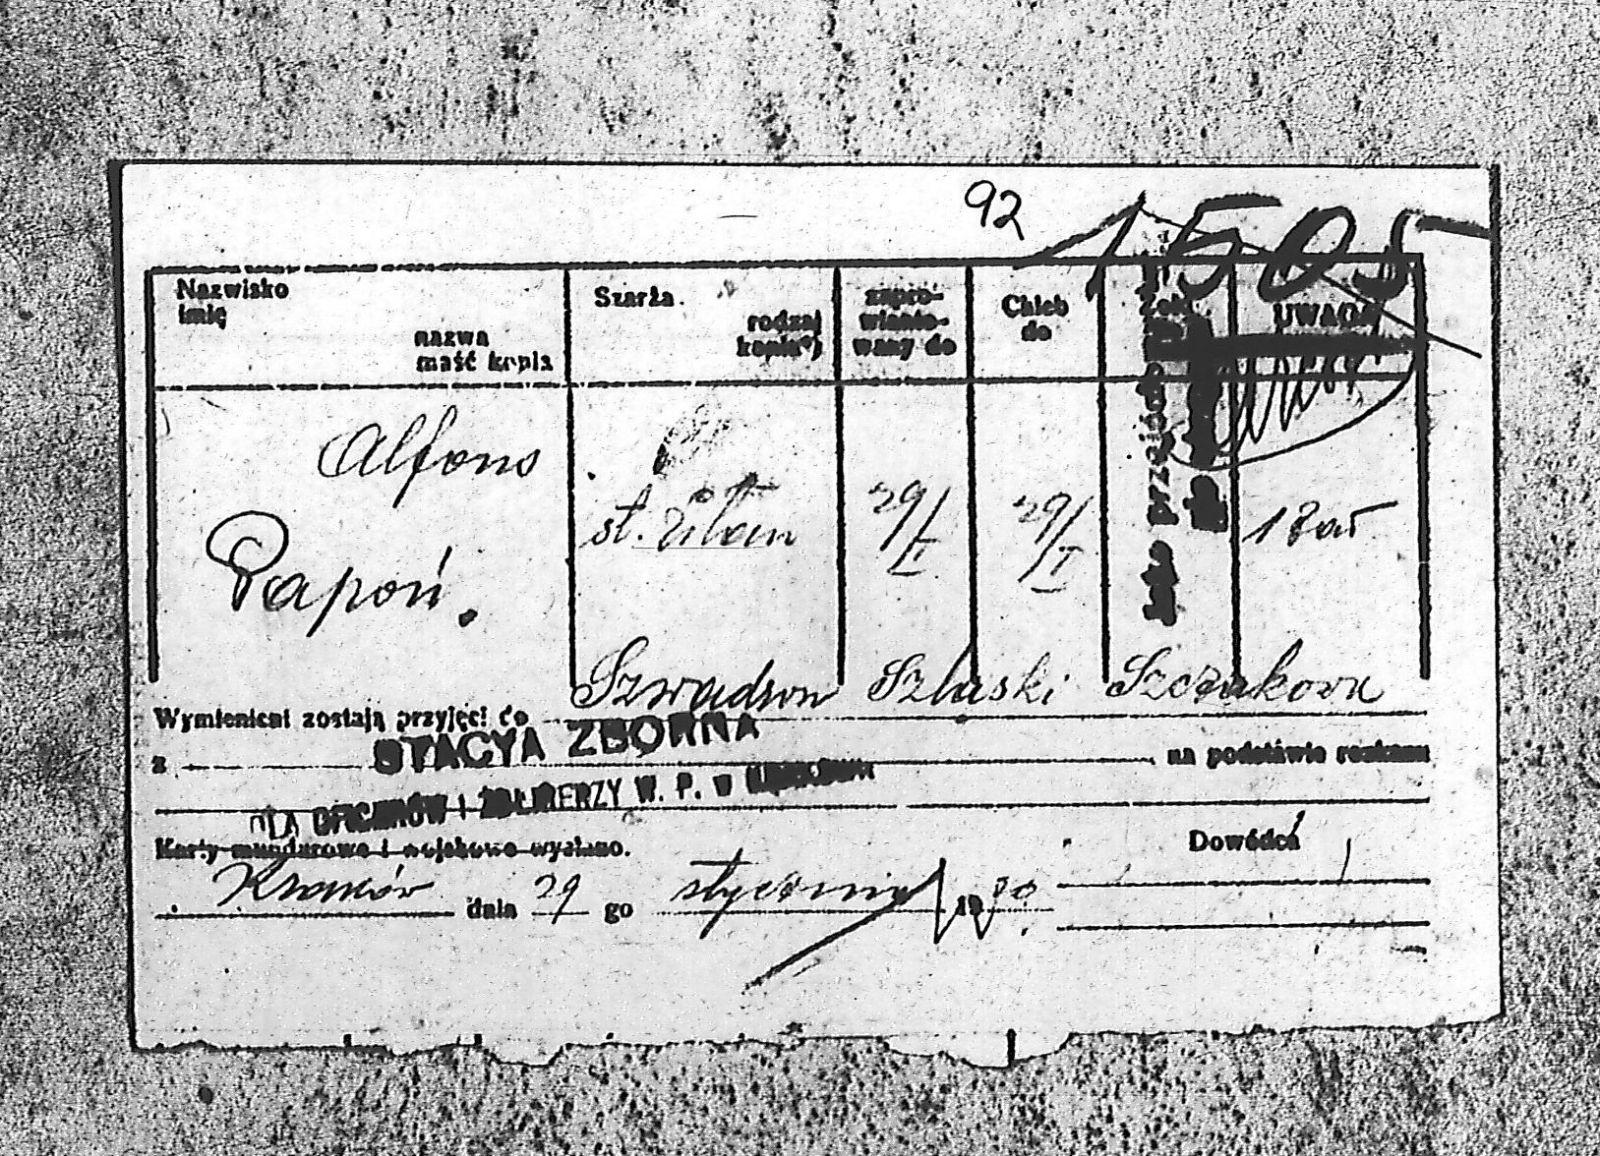 92 1505
Nazwisko
imię
nazwa
maść konia
Szarża
rodzaj
konia*)
zapro-
wianto-
wany do
Chleb
do
Żołd
UWAGA
Alfons
Papoń.
st. ułan
29/I
29/I
1
Szwadron Szląski Szczakowa
Wymienieni zostają przyjęci do
STACYA ZBORNA
z na podstawie rozkazu
DLA OFICERÓW I ŻOŁNIERZY W. P. w KRAKOWIE
Karty mundurowe i wojskowe wysłano.
Dowódca
Kraków dnia 29 go stycznia 1920.